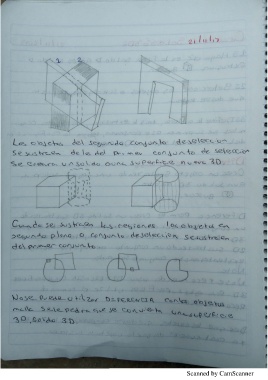 21/11/17
1 2
Los objetos del segundo conjunto de selección
se sustraen de lo del primer conjunto de selección
Se crea un solido o una superficie nueva 3D.
Cuando se sustraen las regiones, los objetos en
segundo plano o conjunto de selección se sustraen
del primer conjunto
No se puede utilizar DIFERENCIA con los objetos
malla 3D se pedira que se convierta una superficie
3D, solido 3D.
Scanned by CamScanner